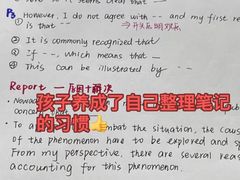 P3
① However, I do not agree with -- and my first re
is that --
⇒开头后明观点
② It is commonly recognized that
③ If --, which means that --
④ This can be illustrated by --
孩子养成了自己整理笔记
的习惯👍
Report
Nowad
concer
To a combat the situation, the caus
of the phenomenon have to be explored and s
From my perspective, there are several reaso
accounting for this phenomenon